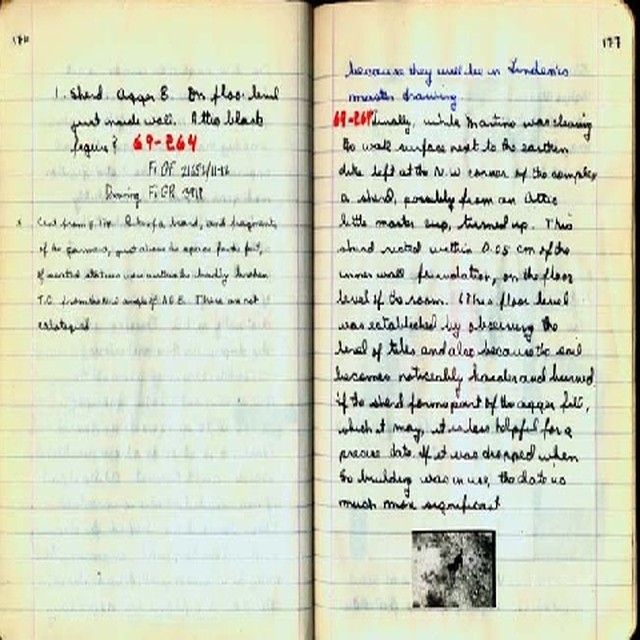 176
1. Sherd. Agger B. On floor level
just inside wall. Attic black
figure? 69-264
F. OF 21659/11-16
Drawing F. GR 3918
x Cent. from p. 170. Bits of a hand, and fragments
of the garment, just above the agger facade fill,
of seated statues was within the chiefly broken
T.C. from the N.W. angle of AGG B. These are not
cataloged
177
because they will be in Linden's
master drawing.
69-264 Finally, while Martino was cleaning
the wall surface next to the earthen
dike left at the N.W. corner of the complex
a sherd, possibly from an Attic
little master cup, turned up. This
sherd rested within 0.05 cm of the
inner wall foundation, on the floor
level of the room. (This floor level
was established by observing the
level of tiles and also because the soil
becomes noticeably harder and burned
if the sherd forms part of the agger fill,
which it may, it is less helpful for a
precise date. If it was dropped when
the building was in use, the date is
much more significant